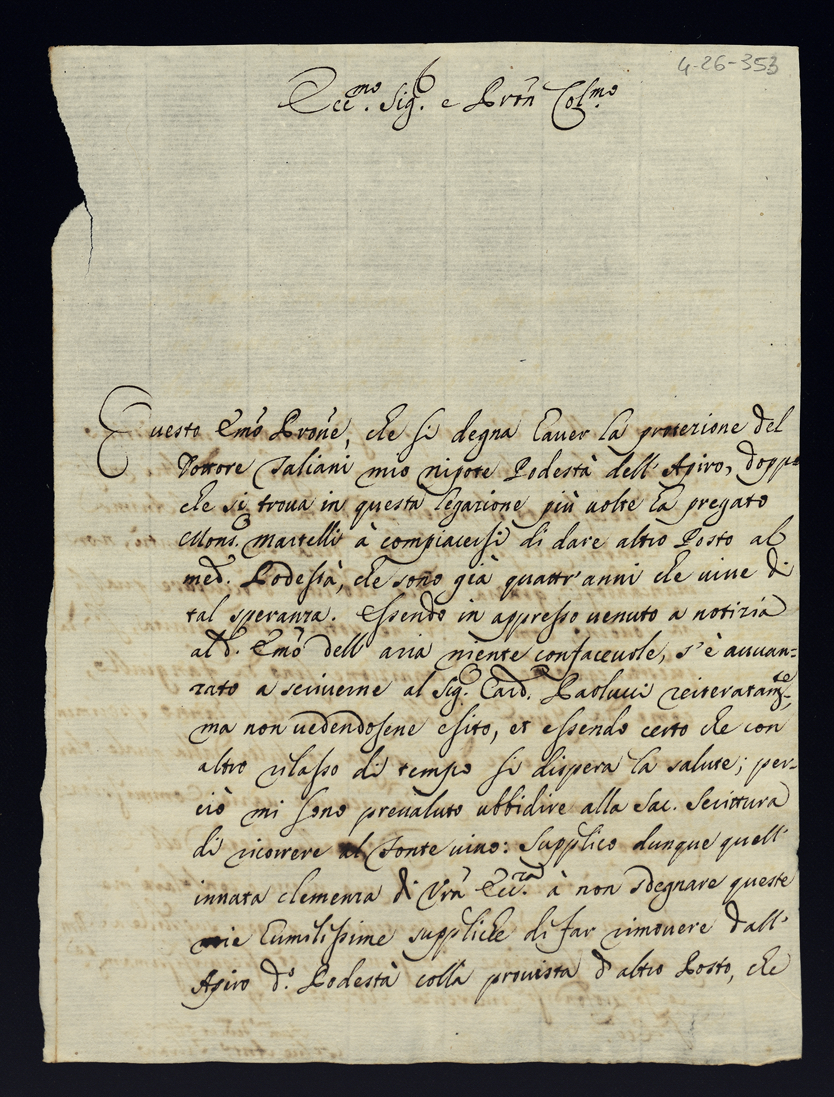 4-26-353
Ecc.mo Sig.r e Pron Col.mo
Questo Emo Prone, che si degna haver la protezione del
Dottore Taliani mio nipote Podestà dell'Apiro, doppo
che si trova in questa legazione più volte ha pregato
Mons. Martelli à compiacersi di dare altro Posto al
med. Podestà, che sono già quattr'anni che vive di
tal speranza. Essendo in appresso venuto a notizia
al d.o Emo dell'aria niente confacevole, s'è avvan=
zato a scriverne al Sig. Card. Paolucci reiteratam.te,
ma non vedendosene esito, et essendo certo che con
altro rilasso di tempo si dispera la salute; per=
ciò mi sono prevaluto ubbidire alla Sac. Scrittura
di ricorrere al Fonte vivo: supplico dunque quell'
innata clemenza di Vra Ecc.za à non sdegnare queste
mie humilissime suppliche di far rimovere dall'
Apiro d.o Podestà colla provista d'altro Posto, che